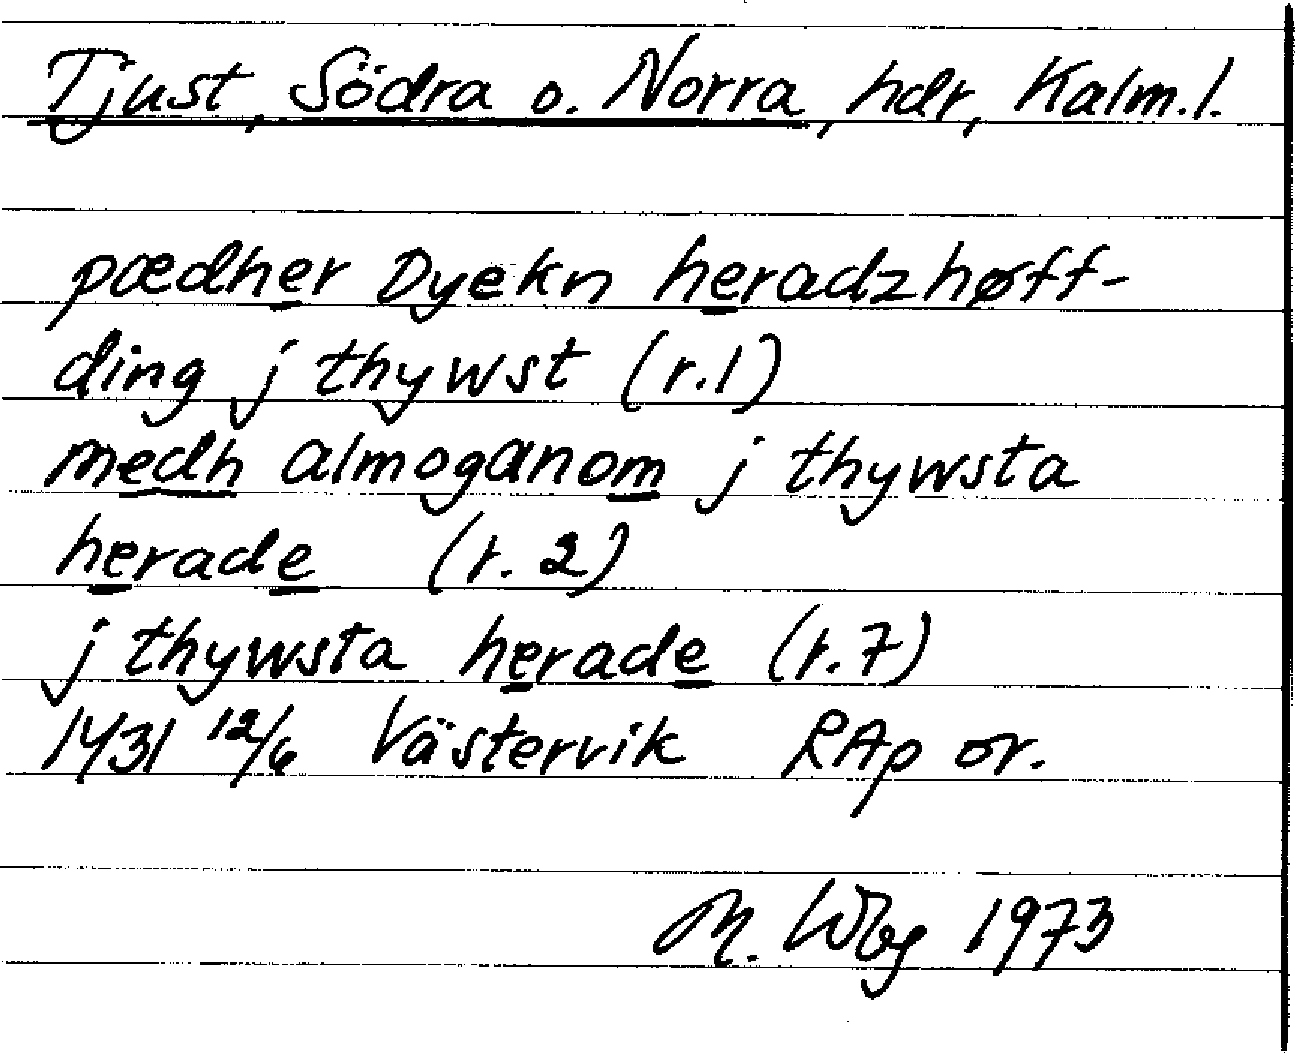 Tjust, Södra o. Norra, hdr, Kalm.l.
pædher Dyekn heradzhøff-
ding j thywst (r.1)
medh almoganom j thywsta
herade (r.2)
j thywsta herade (r.7)
1431 12/6 Västervik RAp or.
M. Wbg 1973